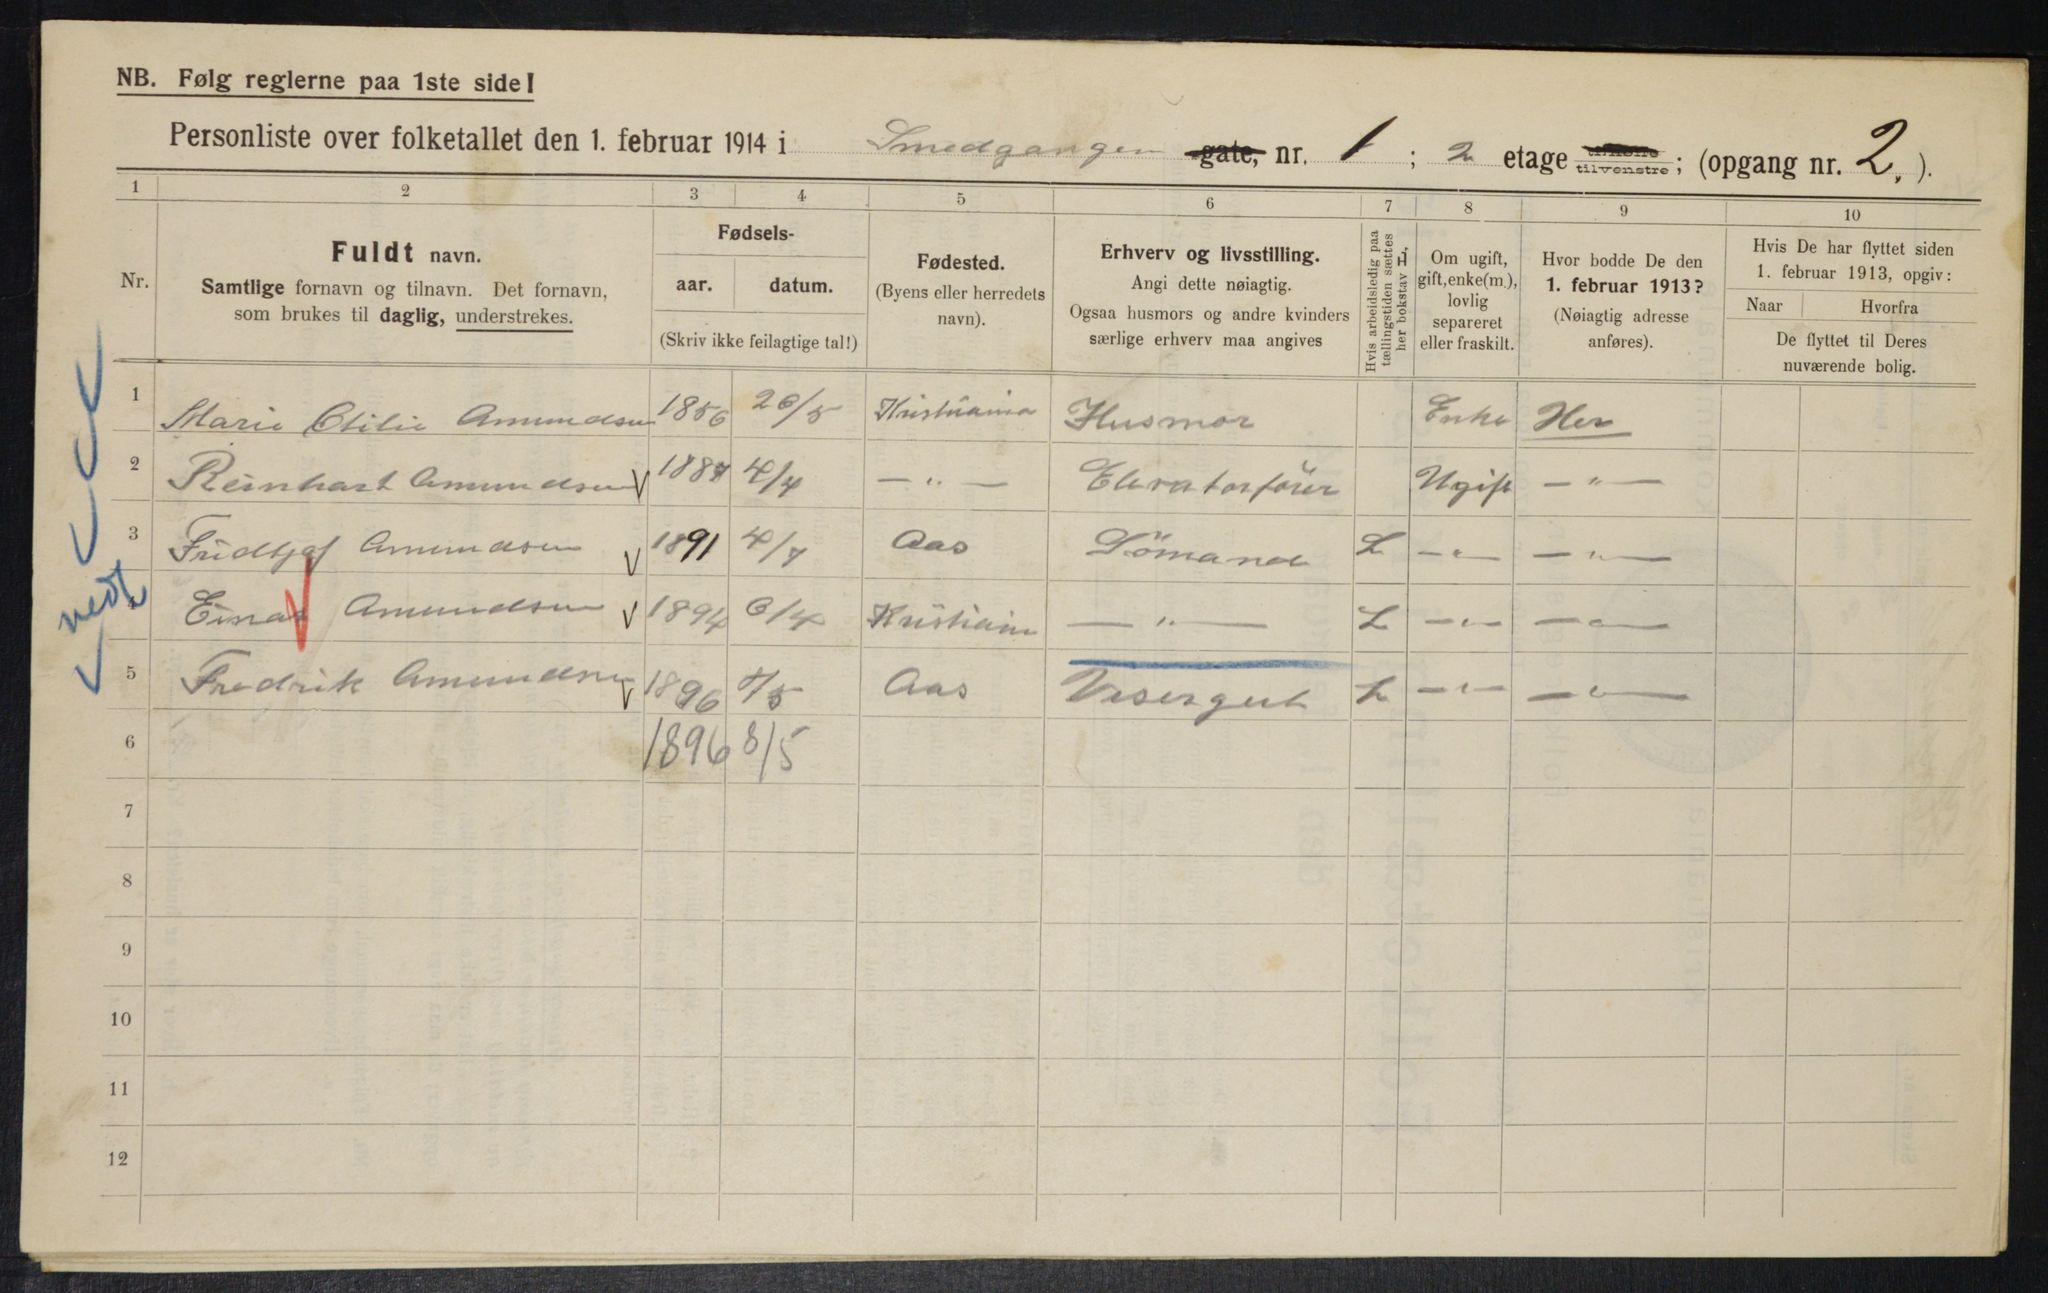 NB. Følg reglerne paa 1ste side!
Personliste over folketallet den 1. februar 1914 i Smedgangen gate, nr. 1 ; 2 etage tilvenstre ; (opgang nr. 2, ).
1 2 3 4 5 6 7 8 9 10
Nr.
Fuldt navn.
Samtlige fornavn og tilnavn. Det fornavn,
som brukes til daglig, understrekes.
Fødsels-
aar. datum.
(Skriv ikke feilagtige tal!)
Fødested.
(Byens eller herredets
navn).
Erhverv og livsstilling.
Angi dette nøiagtig.
Ogsaa husmors og andre kvinders
særlige erhverv maa angives
Hvis arbeidsledig paa
tællingstiden sættes
her bokstav L,
Om ugift,
gift, enke(m.),
lovlig
separeret
eller fraskilt.
Hvor bodde De den
1. februar 1913?
(Nøiagtig adresse
anføres).
Hvis De har flyttet siden
1. februar 1913, opgiv:
Naar Hvorfra
De flyttet til Deres
nuværende bolig.
1 Marie Otilie Amundsen 1856 26/5 Kristiania Husmor Enke Her
2 Reinhart Amundsen 1887 4/4 — " — Elevatorfører Ugift — " —
3 Fridtjof Amundsen 1891 4/7 Aas Sömand L — " — — " —
4 Einar Amundsen 1894 6/4 Kristiania — " — L — " — — " —
5 Fredrik Amundsen 1896 /5 Aas Visergut L — " — — " —
6 1896 8/5
7
8
9
10
11
12